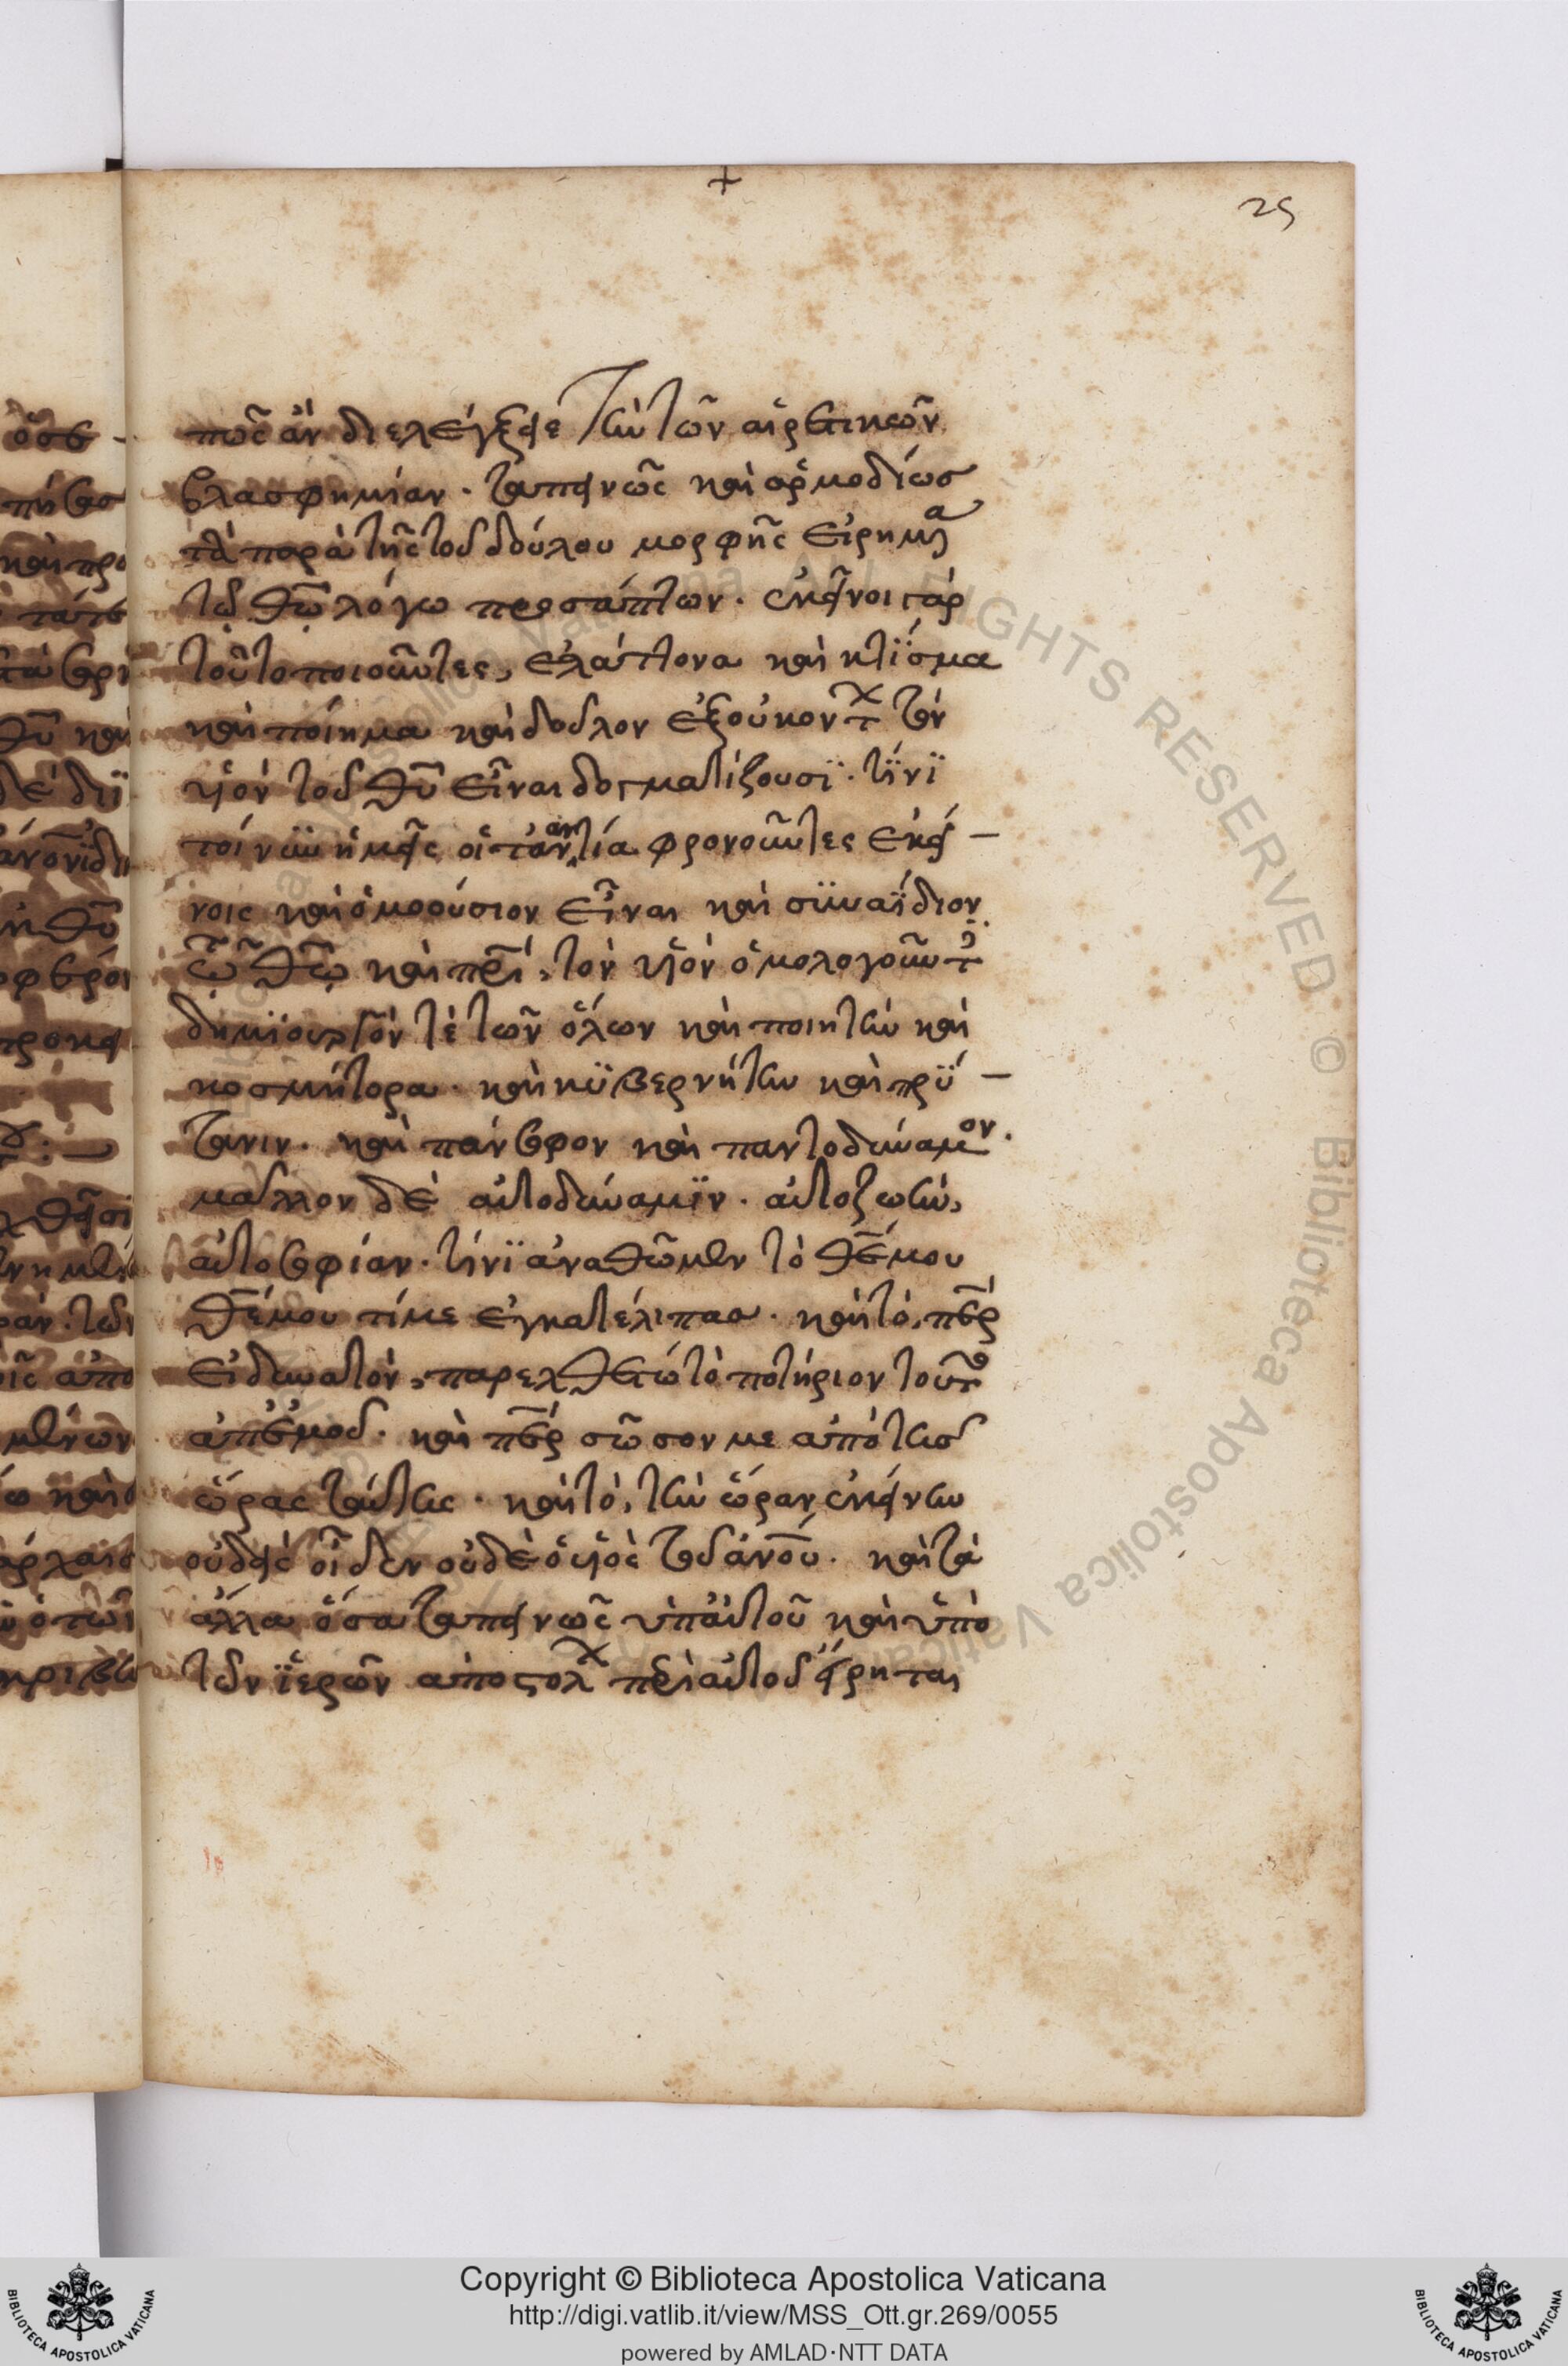 +
25
πῶς ἂν διελέγξειε τὴν τῶν αἱρετικῶν
βλασφημίαν. ταπεινῶς καὶ ἁρμοδίως
τὰ παρὰ τῆς τοῦ δούλου μορφῆς εἰρημ
τῶ θῶ λόγω προσάπτων. ἐκεῖνοι γὰρ
τοῦτο ποιοῦντες, ἐλάττονα καὶ κτΐσμα
καὶ ποίημα καὶ δοῦλον ἐξουκοντ τὸν
υἱὸν τοῦ θῦ εἶναι δογματίζουσϊ. τίνϊ
τοίνυν ἡμεῖς οἱ τἀναντία φρονοῦντες ἐκεί
νοις καὶ ὁμοούσιον εἶναι καὶ συναΐδιον
τῶ θῶ καὶ πρὶ, τὸν υἱὸν ὁμολογοῦντ
δημϊουργόν τὲ τῶν ὅλων καὶ ποιητὴν καὶ
κοσμήτορα. καὶ κϋβερνήτην καὶ πρϋ
τανιν. καὶ πάνσοφον καὶ παντοδύναμον.
μᾶλλον δὲ αὐτοδύναμϊν. αὐτοζωὴν,
αὐτοσοφίαν. τίνϊ ἀναθῶμεν τὸ θέ μου
θέ μου τί με ἐγκατέλιπας. καὶ τὸ, περ
εἰ δυνατὸν, παρελθέτω τὸ ποτήριον τοῦτο
ἀπ' ἐμοῦ. καὶ περ σῶσον με ἀπὸ τῆς
ὥρας ταύτης. καὶ τὸ, τὴν ὥραν ἐκείνην
οὐδεὶς οἶδεν οὐδὲ ὁ υἱὸς τοῦ ἀνου. καὶ τὰ
ἄλλα ὅσα ταπεινῶς ὑπ' αὐτοῦ καὶ ὑπὸ
τῶν ϊερῶν ἀποστολ περὶ αὐτοῦ εἴρηται
Copyright © Biblioteca Apostolica Vaticana
http://digi.vatlib.it/view/MSS_Ott.gr.269/0055
powered by AMLAD·NTT DATA
BIBLIOTECA APOSTOLICA VATICANA
BIBLIOTECA APOSTOLICA VATICANA